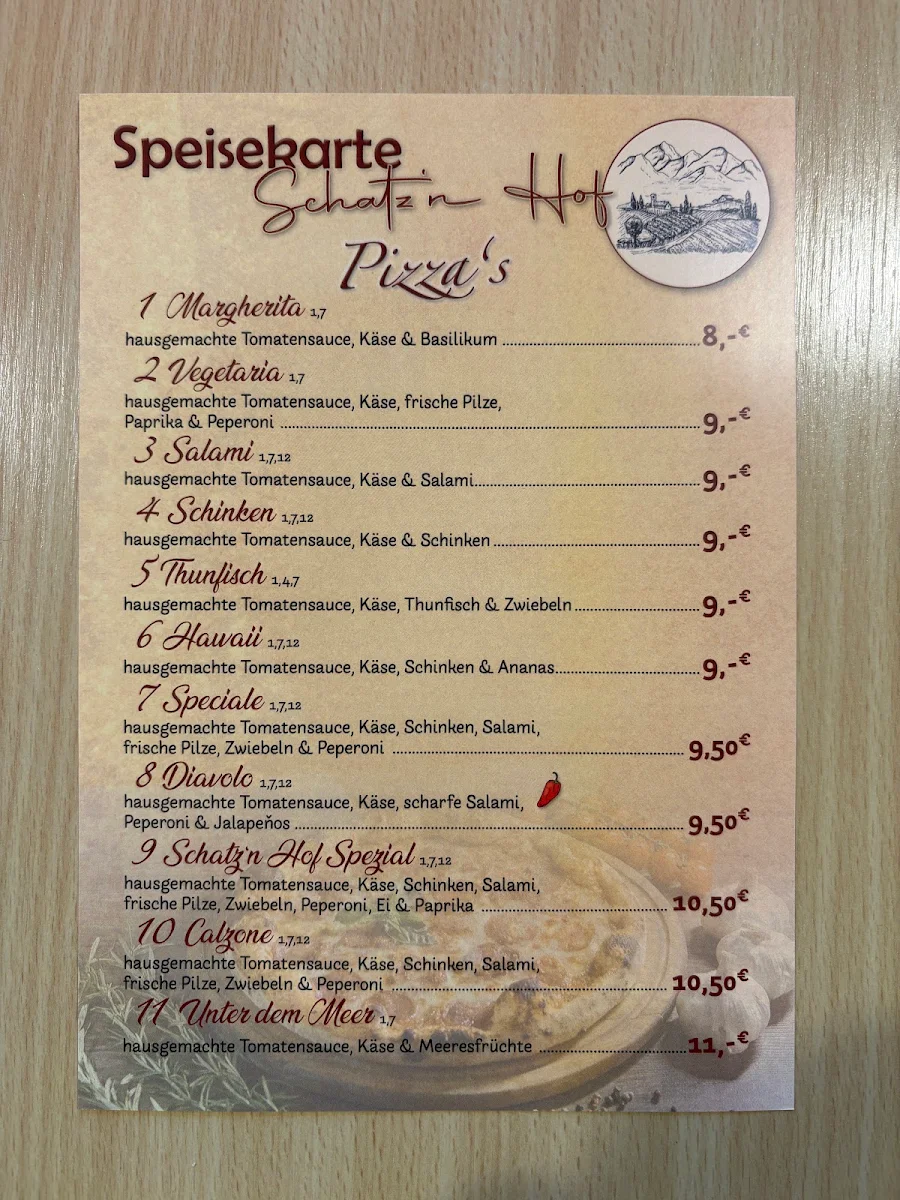 Speisekarte
Schatz'n Hof
Pizza's
1 Margherita 1,7
hausgemachte Tomatensauce, Käse & Basilikum ........ 8,-€
2 Vegetaria 1,7
hausgemachte Tomatensauce, Käse, frische Pilze,
Paprika & Peperoni ........ 9,-€
3 Salami 1,7,12
hausgemachte Tomatensauce, Käse & Salami ........ 9,-€
4 Schinken 1,7,12
hausgemachte Tomatensauce, Käse & Schinken ........ 9,-€
5 Thunfisch 1,4,7
hausgemachte Tomatensauce, Käse, Thunfisch & Zwiebeln ........ 9,-€
6 Hawaii 1,7,12
hausgemachte Tomatensauce, Käse, Schinken & Ananas ........ 9,-€
7 Speciale 1,7,12
hausgemachte Tomatensauce, Käse, Schinken, Salami,
frische Pilze, Zwiebeln & Peperoni ........ 9,50€
8 Diavolo 1,7,12
hausgemachte Tomatensauce, Käse, scharfe Salami,
Peperoni & Jalapeňos ........ 9,50€
9 Schatz'n Hof Spezial 1,7,12
hausgemachte Tomatensauce, Käse, Schinken, Salami,
frische Pilze, Zwiebeln, Peperoni, Ei & Paprika ........ 10,50€
10 Calzone 1,7,12
hausgemachte Tomatensauce, Käse, Schinken, Salami,
frische Pilze, Zwiebeln & Peperoni ........ 10,50€
11 Unter dem Meer 1,7
hausgemachte Tomatensauce, Käse & Meeresfrüchte ........ 11,-€